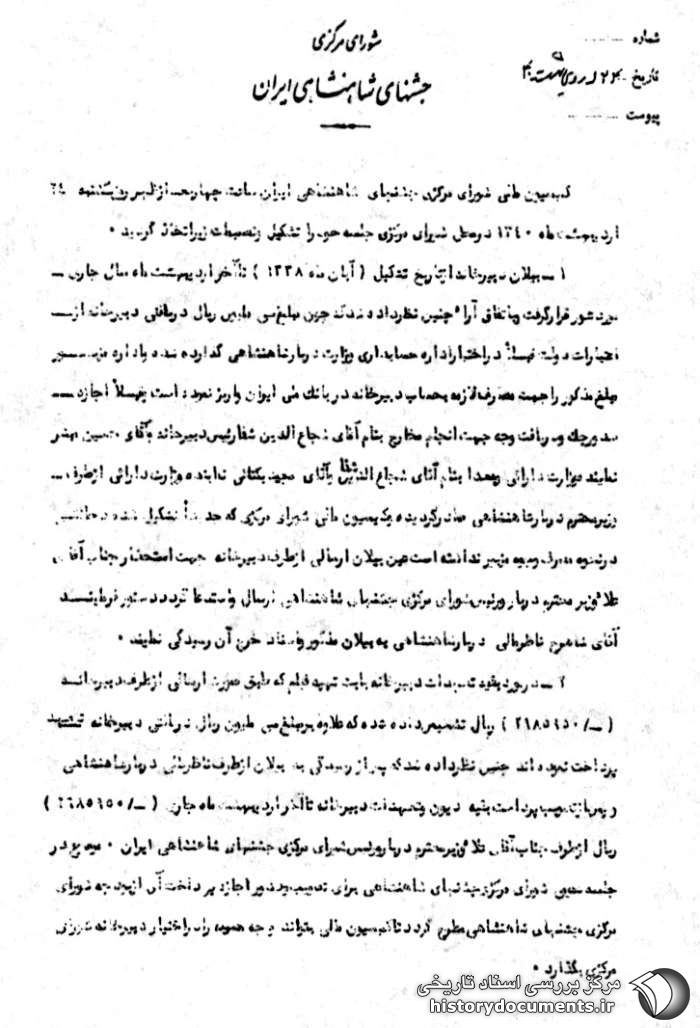 شماره
شورای مرکزی
تاریخ
جشنهای شاهنشاهی ایران
پیوست
کمیسیون مالی شورای مرکزی جشنهای شاهنشاهی ایران ساعت چهار بعد از ظهر روز یکشنبه ۲٤
اردیبهشت ماه ۱۳٤۰ در محل شورای مرکزی جلسه خود را تشکیل و تصمیمات زیر اتخاذ گردید .
۱ ـ بیلان دبیرخانه از تاریخ تشکیل ( آبان ماه ۱۳۳۸ ) تا آخر اردیبهشت ماه سال جاری ـ
مورد شور قرار گرفت و باتفاق آراء چنین نظر داده شد که چون مبلغ سی ملیون ریال دریافتی دبیرخانه از ـ
اعتبارات دولت قبلاً در اختیار اداره حسابداری وزارت دربار شاهنشاهی گذارده شده و اداره مزبور
مبلغ مذکور را جهت مصارف لازمه بحساب دبیرخانه در بانک ملی ایران واریز نموده است و قبلاً اجازه ـ
صدور چک و دریافت وجه جهت انجام مخارج بنام آقای شجاع الدین شفا رئیس دبیرخانه و آقای
نماینده وزارت دارائی و بعداً بنام آقای شجاع الدین شفا و آقای مجید یکتائی نماینده وزارت دارائی از طرف ـ
وزیر محترم دربار شاهنشاهی صادر گردیده و کمیسیون مالی شورای مرکزی که جدیداً تشکیل شده دخالتی
در نحوه مصرف وجوه مزبور نداشته است عین بیلان ارسالی از طرف دبیرخانه جهت استحضار جناب آقای
علاء وزیر محترم دربار و رئیس شورای مرکزی جشنهای شاهنشاهی ارسال و استدعا گردد دستور فرمایند
آقای شاهرخ ناظر مالی دربار شاهنشاهی به بیلان مذکور و اسناد خرج آن رسیدگی نمایند .
۲ ـ در مورد بقیه تعهدات دبیرخانه بابت تهیه فیلم که طبق صورت ارسالی از طرف دبیرخانه
( ـ/۲٦۸٥٦٥۰ ) ریال تشخیص داده شده که علاوه بر مبلغ سی ملیون ریال دریافتی دبیرخانه
پرداخت نموده اند چنین نظر داده شد که پس از رسیدگی به بیلان از طرف ناظر مالی دربار شاهنشاهی
و پرداخت بقیه دیون و تعهدات دبیرخانه تا آخر اردیبهشت ماه جاری ( ـ/۲٦۸٥٦٥۰ )
ریال از طرف جناب آقای علاء وزیر محترم دربار و رئیس شورای مرکزی جشنهای شاهنشاهی ایران . موضوع در
جلسه شورای مرکزی جشنهای شاهنشاهی برای تصویب و صدور اجازه پرداخت آن از بودجه شورای
مرکزی جشنهای شاهنشاهی مطرح گردد تا کمیسیون مالی بتواند وجه را در اختیار دبیرخانه شورای
مرکزی بگذارد .
مرکز بررسی اسناد تاریخی
historydocuments.ir